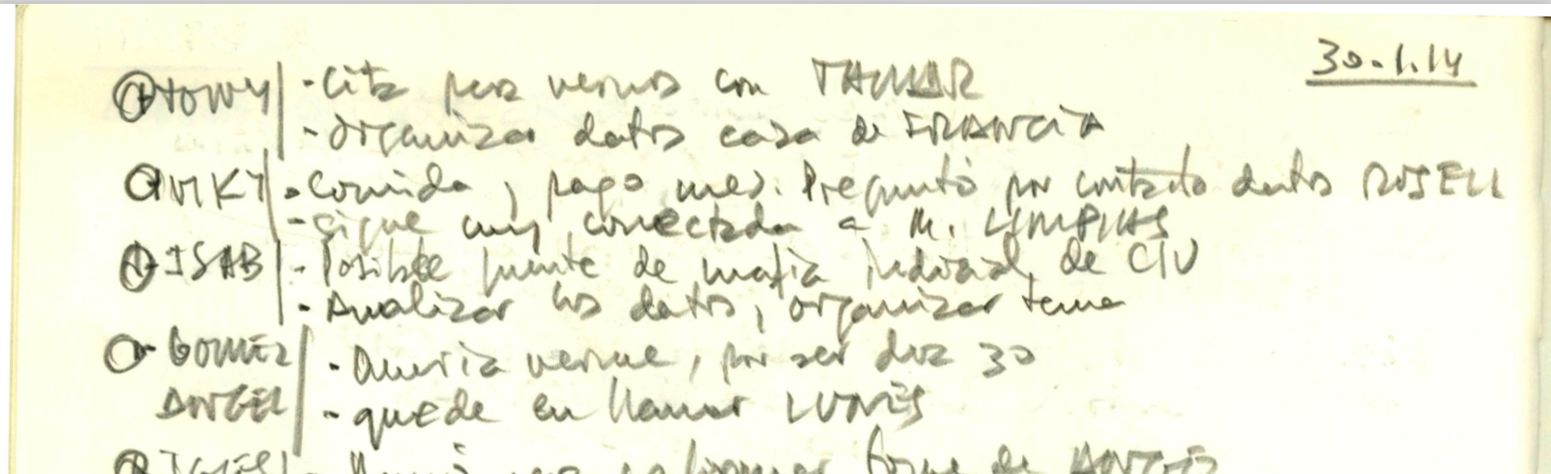 30-1.14
TONY | - Cita para vernos con TAMAR
- Organizar datos casa de FRANCIA
VIKY | - Comida, pago mes. Preguntó por contacto datos ROSELL
- Sigue muy conectada a M. LIMPIAS
ISAB | - Posible fuente de mafia judicial de CIU
- Analizar los datos, organizar tema
- GOMEZ | - Quería verme, por ser dia 30
ANGEL | - quede en llamar LUNES